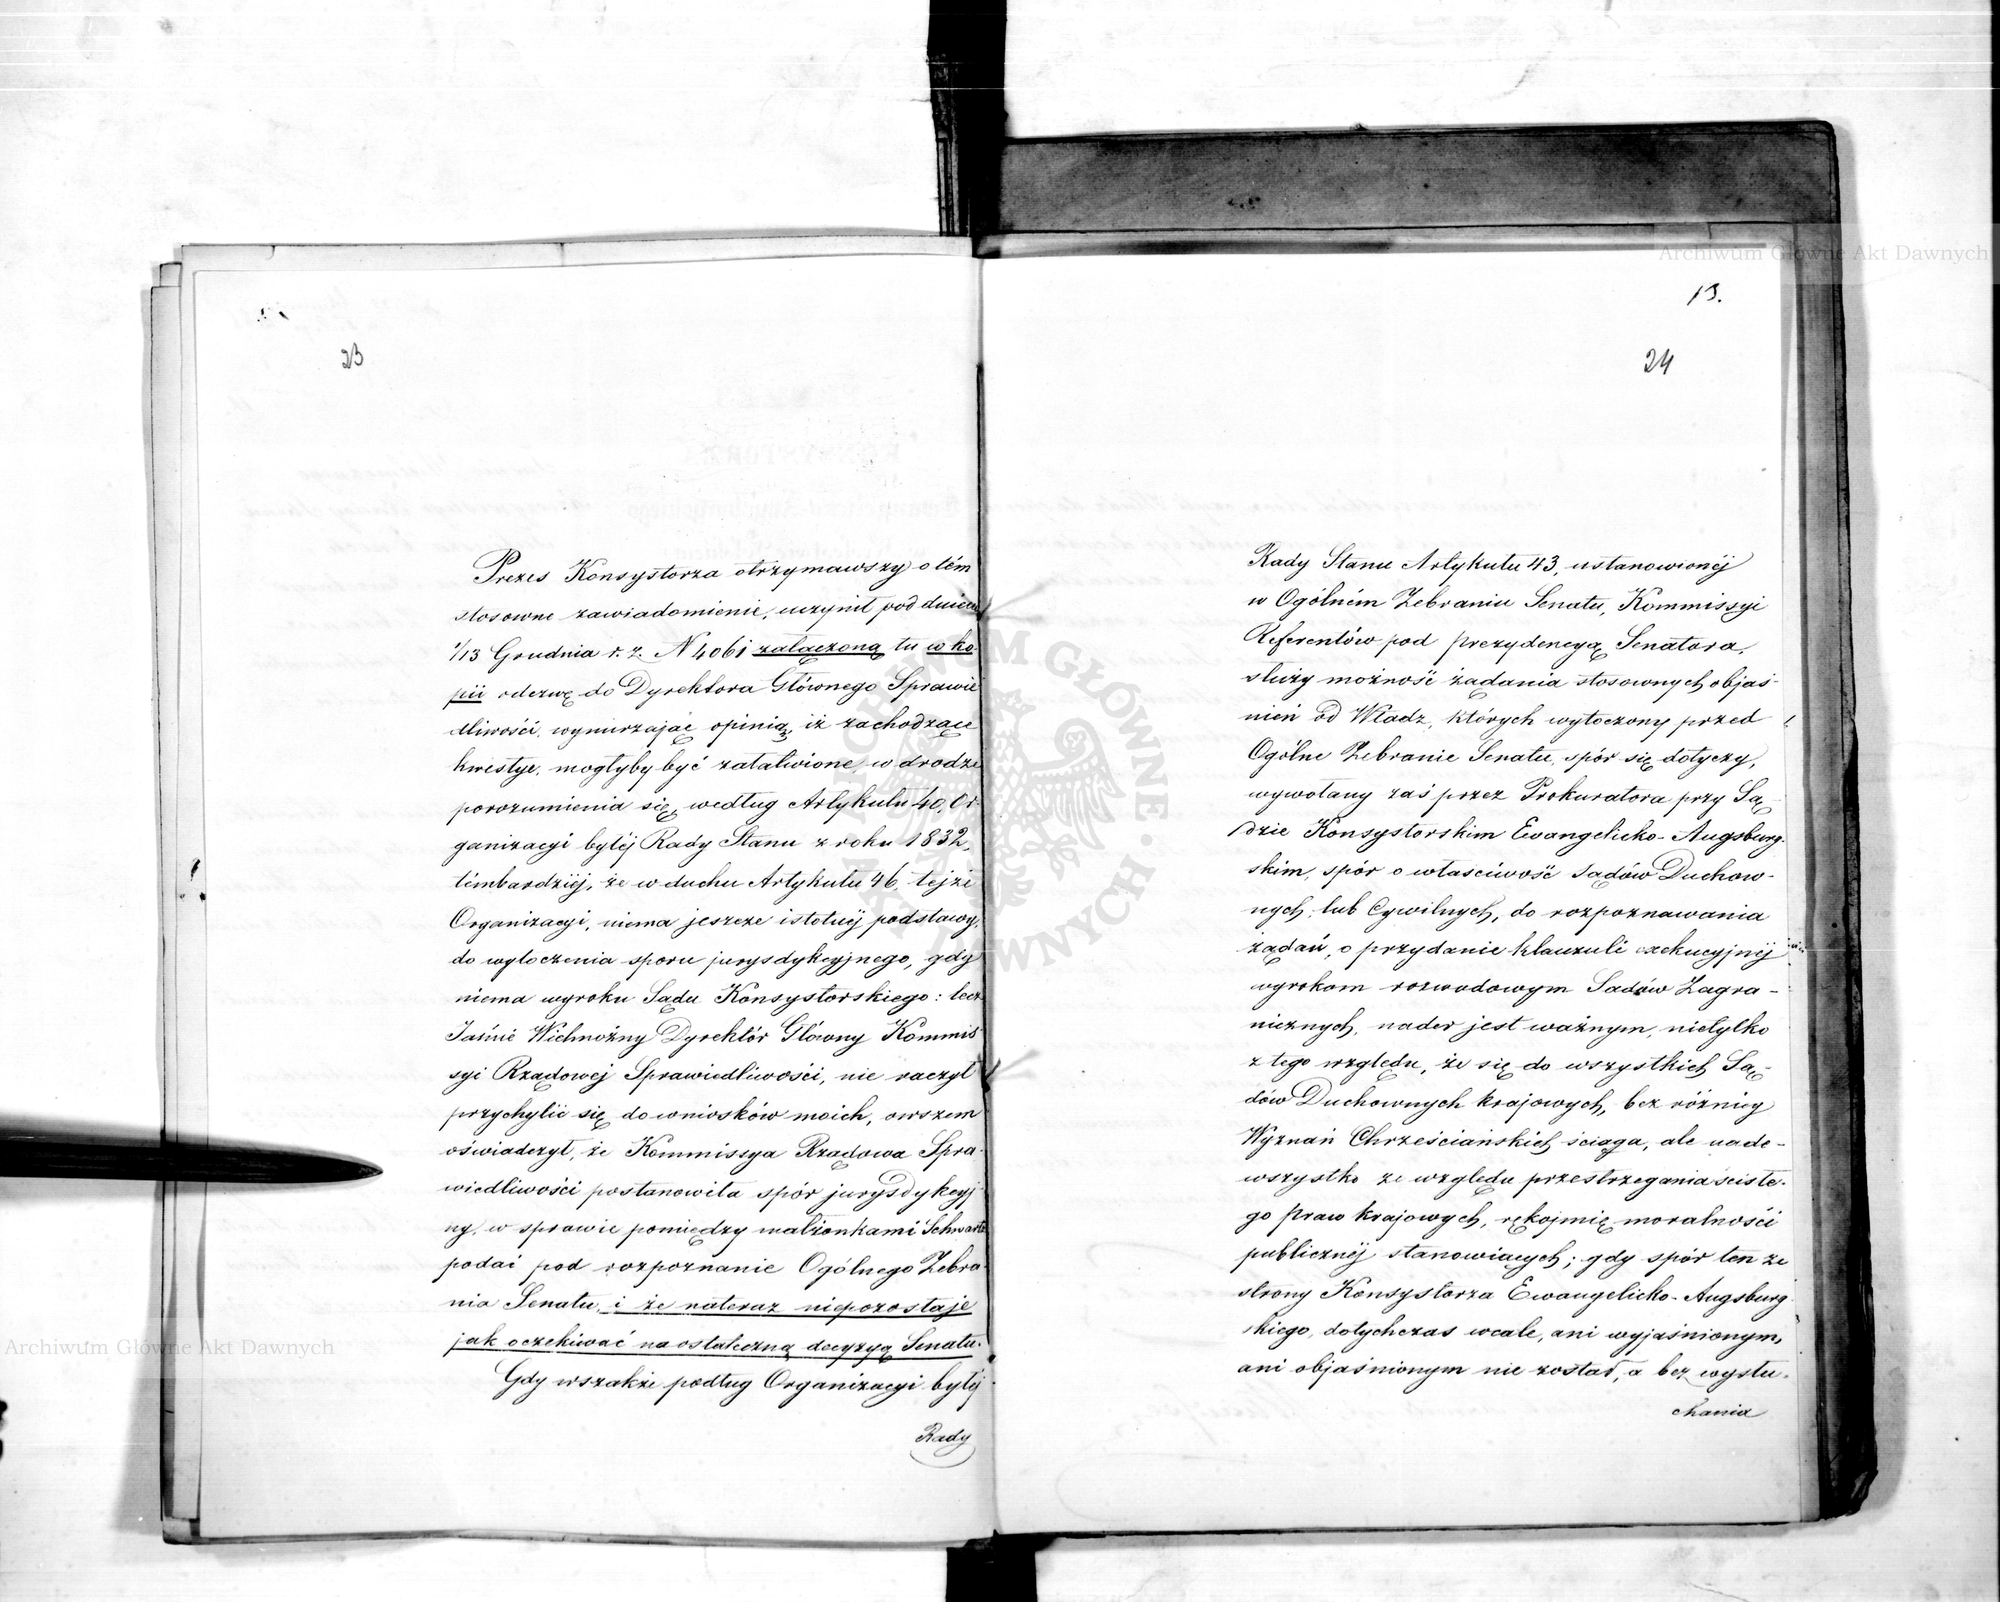 23
Prezes Konsystorza otrzymawszy o tém
stosowne zawiadomienie, uczynił pod dniem
1/13 Grudnia r. z. N 4061 załączoną tu w ko-
pii odezwę do Dyrektora Głównego Sprawie
dliwości, wynurzając opinią, iż zachodzące
kwestye, mogłyby być załatwione, w drodze
porozumienia się, według Artykułu 40, Or-
ganizacyi byłéj Rady Stanu z roku 1832,
témbardziéj, że w duchu Artykułu 46, tejże
Organizacyi, niema jeszcze istotnéj podstawy,
do wytoczenia sporu jurysdykcyjnego, gdy
niema wyroku Sądu Konsystorskiego: lecz
Jaśnie Wielmożny Dyrektór Główny Kommis
syi Rządowej Sprawiedliwości, nie raczył
przychylić się do wniosków moich, owszem
oświadczył, że Kommissya Rządowa Spra-
wiedliwości postanowiła spór jurysdykcyj-
ny, w sprawie pomiędzy małżonkami Schwartz
podać pod rozpoznanie Ogólnego Zebra-
nia Senatu, i że nateraz niepozostaje
jak oczekiwać na ostateczną decyzyą Senatu.
Gdy wszakże podług Organizacyi byłéj
Rady
13.
24
Rady Stanu Artykułu 43, ustanowionéj
w Ogólném Zebraniu Senatu, Kommissyi
Referentów pod prezydencyą Senatora,
służy możność żądania stosownych objaś-
nień od Władz, których wytoczony przed
Ogólne Zebranie Senatu, spór się dotyczy,
wywołany zaś przez Prokuratora przy Są-
dzie Konsystorskim Ewangelicko-Augsburg-
skim, spór o właściwość Sądów Duchow-
nych, lub Cywilnych, do rozpoznawania
żądań, o przydanie klauzuli exekucyjnéj
wyrokom rozwodowym Sadów Zagra-
nicznych, nader jest ważnym, nietylko
z tego względu, że się do wszystkich Są-
dów Duchownych krajowych, bez różnicy
Wyznań Chrześciańskich ściąga, ale nade-
wszystko ze względu przestrzegania ściśle-
go praw krajowych, rękojmię moralności
publicznéj stanowiących; gdy spór ten ze
strony Konsystorza Ewangelicko-Augsburg-
skiego, dotychczas wcale, ani wyjaśnionym,
ani objaśnionym nie został, a bez wysłu-
chania
Archiwum Główne Akt Dawnych
Archiwum Główne Akt Dawnych